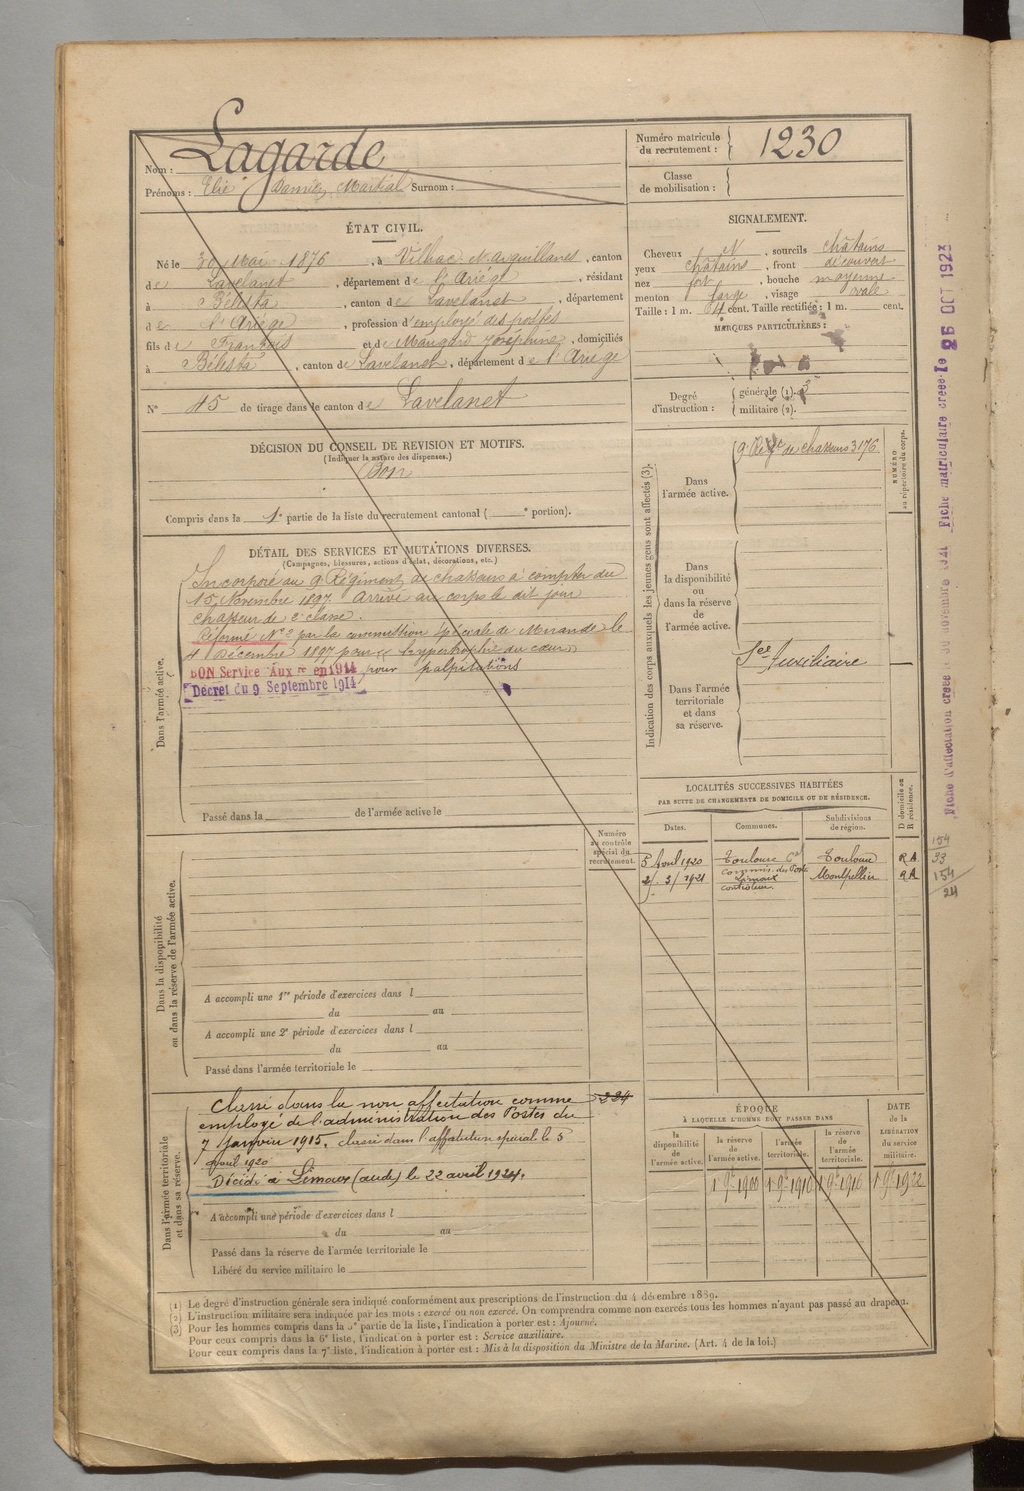 Nom : Lagarde
Prénoms : Elie Damien Martial Surnom :
Numéro matricule du recrutement : 1230
Classe de mobilisation :
ÉTAT CIVIL.
Né le 30 Mai 1876, à Vilhac N. Arguillanes, canton
de Lavelanet, département de l'Ariége, résidant
à Bélesta, canton de Lavelanet, département
de l'Ariége, profession d'employé des postes
fils de François et de Maugard Joséphine, domiciliés
à Bélesta, canton de Lavelanet, département de l'Ariége
N° 45 de tirage dans le canton de Lavelanet
SIGNALEMENT.
Cheveux N, sourcils châtains
yeux châtains, front découvert
nez fort, bouche moyenne
menton large, visage ovale
Taille : 1 m. 64 cent. Taille rectifiée : 1 m. cent.
MARQUES PARTICULIÈRES :
Degré d'instruction : générale (1). 3
militaire (2).
DÉCISION DU CONSEIL DE REVISION ET MOTIFS.
(Indiquer la nature des dispenses.)
Bon
Compris dans la 1e partie de la liste du recrutement cantonal ( e portion).
DÉTAIL DES SERVICES ET MUTATIONS DIVERSES.
(Campagnes, blessures, actions d'éclat, décorations, etc.)
Dans l'armée active.
Incorporé au 9 Régiment de chasseurs à compter du
15 Novembre 1897 Arrivé au corps le dit jour
chasseur de 2e classe.
Réformé N° 2 par la commission spéciale de Mirande le
4 Décembre 1897 pour hypertrophie du cœur
pour palpitations
BON Service Auxre en 1914
Décret du 9 Septembre 1914
Passé dans la de l'armée active le
Indication des corps auxquels les jeunes gens sont affectés (3).
NUMÉRO au répertoire du corps.
Dans l'armée active.
9 Régt de chasseurs 3176
Dans la disponibilité ou dans la réserve de l'armée active.
Dans l'armée territoriale et dans sa réserve.
Sce Auxiliaire
LOCALITÉS SUCCESSIVES HABITÉES
PAR SUITE DE CHANGEMENTS DE DOMICILE OU DE RÉSIDENCE.
Dates. Communes. Subdivisions de région. D domicile ou R résidence.
5 Avril 1920 Toulouse Toulouse RA
commis des Postes
2/3/1921 Limoux Montpellier RA
controleur
Numéro au contrôle spécial du recrutement.
Dans la disponibilité ou dans la réserve de l'armée active.
A accompli une 1re période d'exercices dans l
du au
A accompli une 2e période d'exercices dans l
du au
Passé dans l'armée territoriale le
Dans l'armée territoriale et dans sa réserve.
Classé dans la non affectation comme
employé de l'administration des Postes du
7 Janvier 1915, classé dans l'affectation spécial le 5
Avril 1920
Décédé à Limoux (aude) le 22 avril 1924.
A accompli une période d'exercices dans l
du au
Passé dans la réserve de l'armée territoriale le
Libéré du service militaire le
ÉPOQUE
À LAQUELLE L'HOMME DOIT PASSER DANS
la disponibilité de l'armée active.
la réserve de l'armée active.
l'armée territoriale.
la réserve de l'armée territoriale.
DATE de la LIBÉRATION du service militaire.
1 9e 1900 1 9e 1910 1 9e 1916 1 9e 1922
Fiche d'affectation créée le 30 novembre 1921 Fiche matriculaire créée le 26 OCT 1923
154
33
154
24
(1) Le degré d'instruction générale sera indiqué conformément aux prescriptions de l'instruction du 4 décembre 1889.
(2) L'instruction militaire sera indiquée par les mots : exercé ou non exercé. On comprendra comme non exercés tous les hommes n'ayant pas passé au drapeau.
(3) Pour les hommes compris dans la 5e partie de la liste, l'indication à porter est : Ajourné.
Pour ceux compris dans la 6e liste, l'indication à porter est : Service auxiliaire.
Pour ceux compris dans la 7e liste, l'indication à porter est : Mis à la disposition du Ministre de la Marine. (Art. 4 de la loi.)